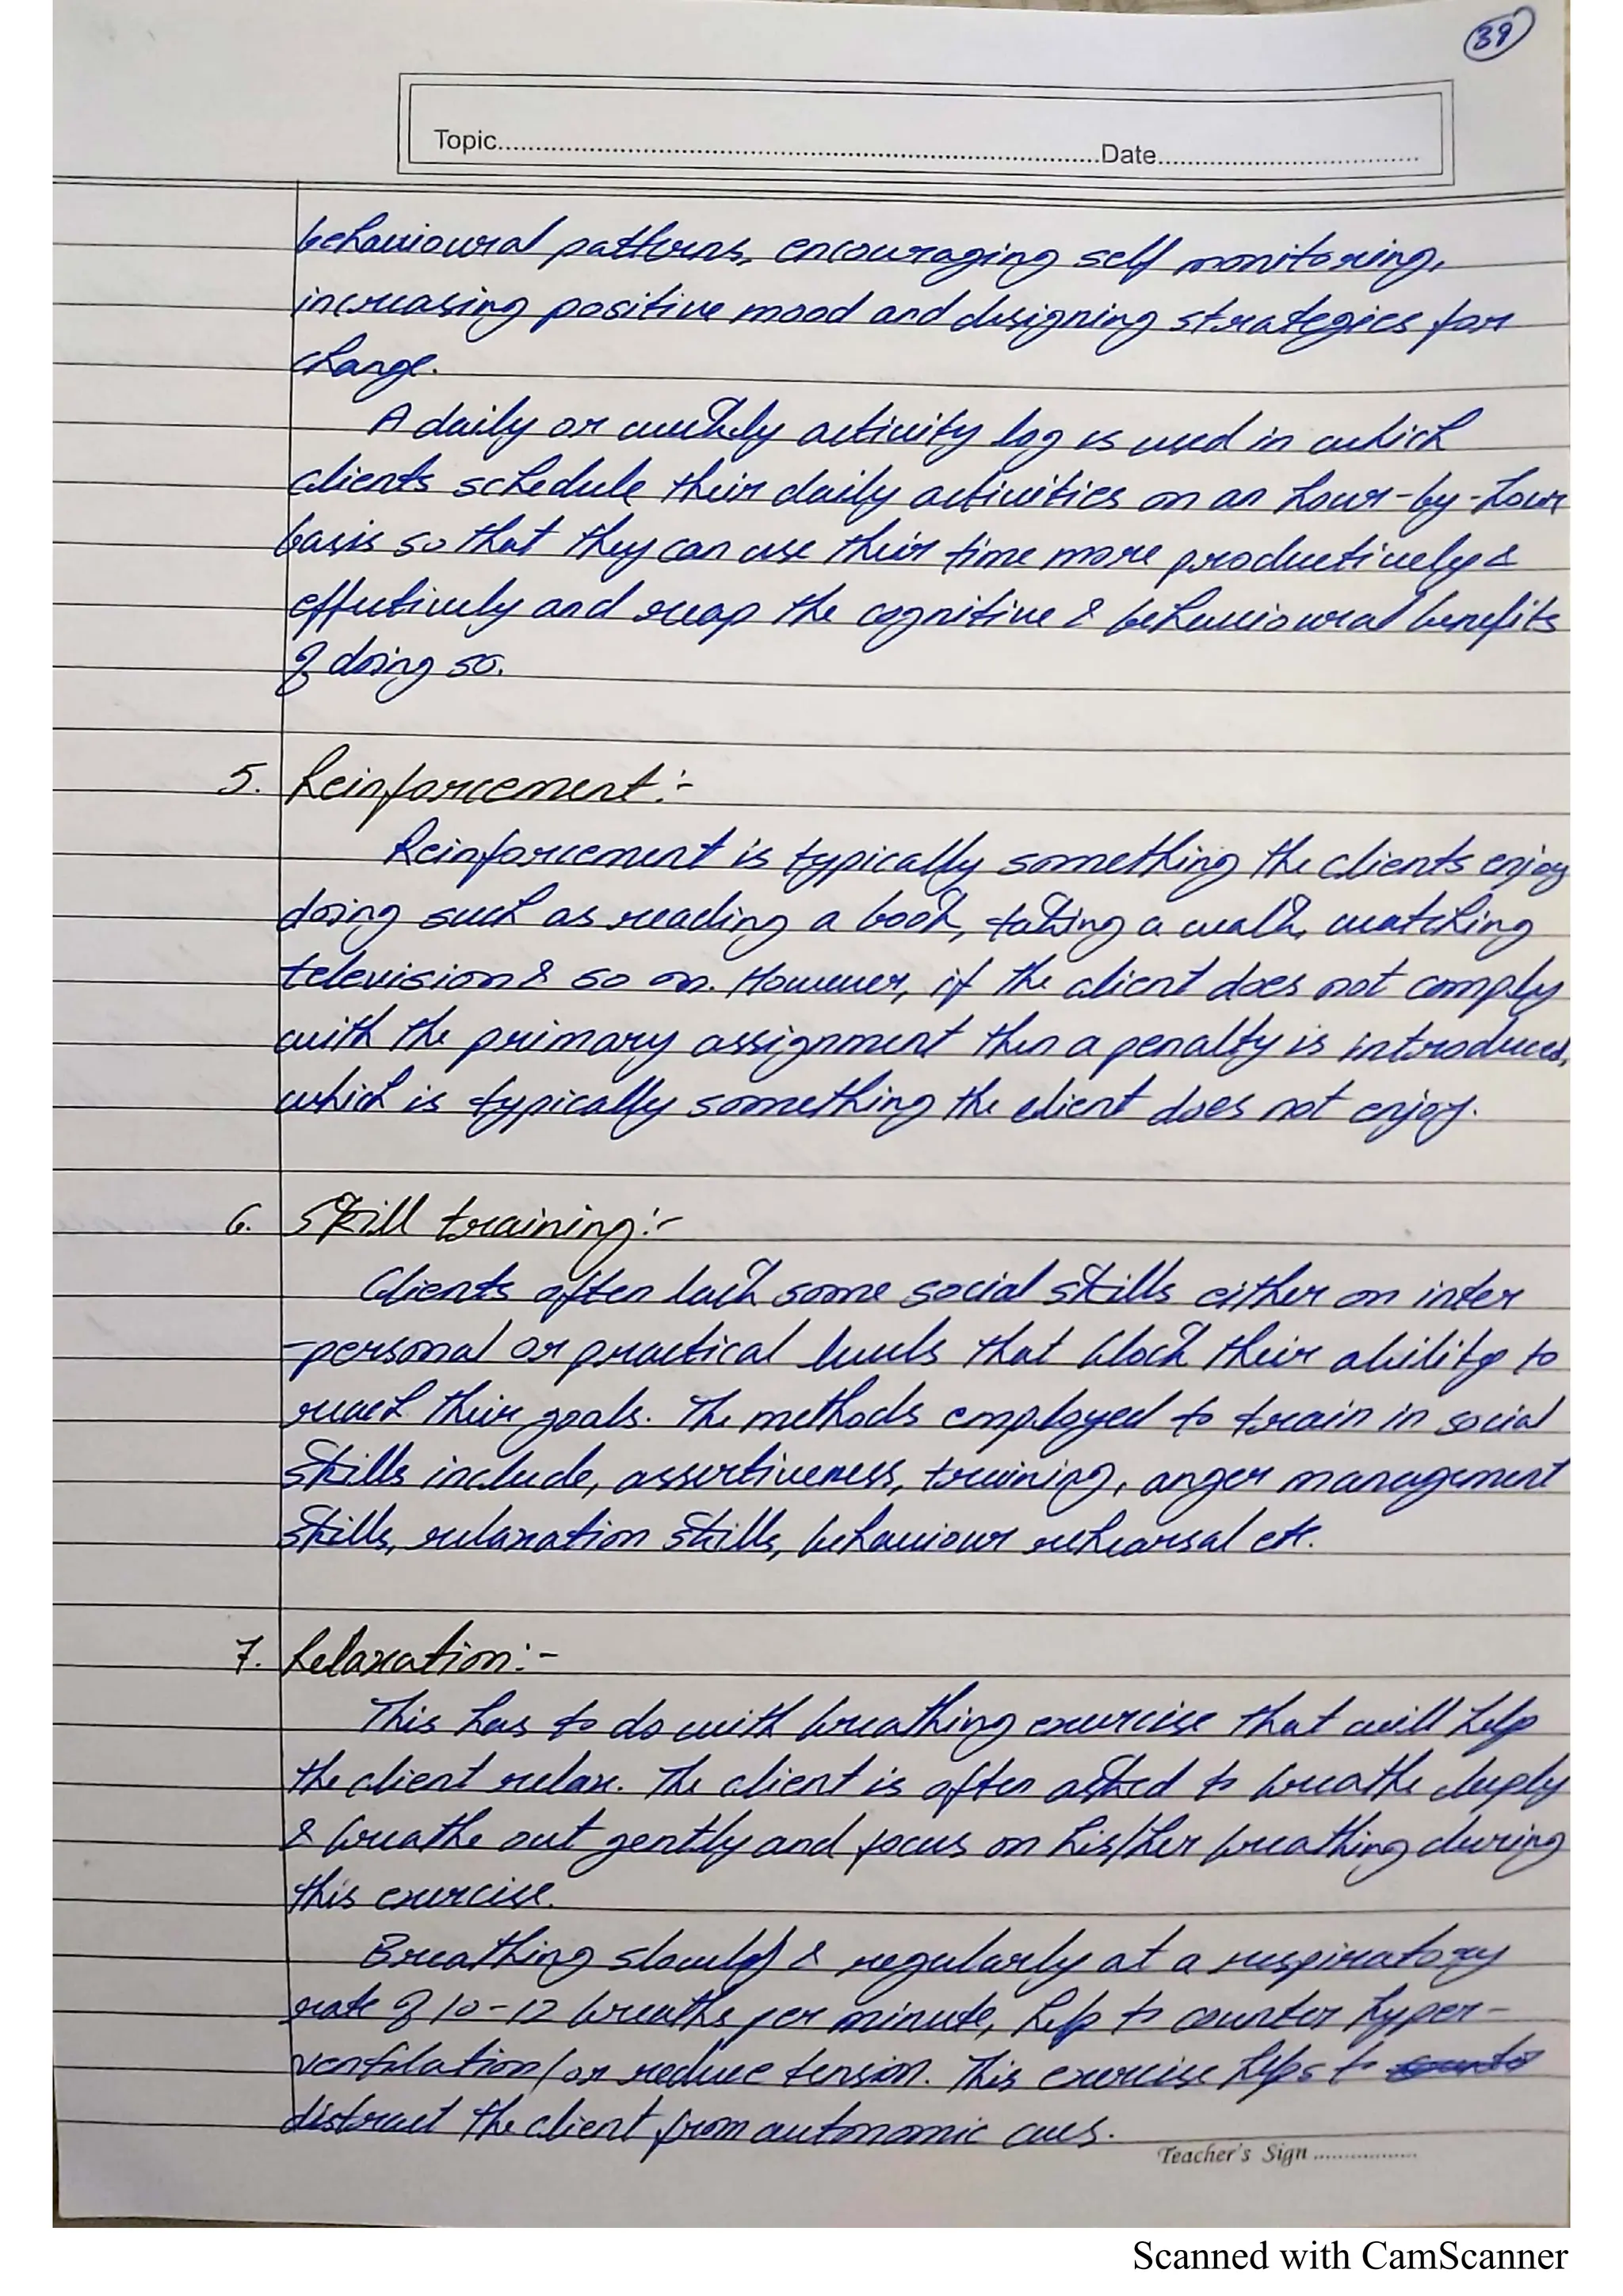 39
Topic..............................Date..............................
behavioural patterns, encouraging self monitoring,
increasing positive mood and designing strategies for
change.
A daily or weekly activity log is used in which
clients schedule their daily activities on an hour-by-hour
basis so that they can use their time more productively &
effectively and reap the cognitive & behavioural benefits
of doing so.
5. Reinforcement:-
Reinforcement is typically something the clients enjoy
doing such as reading a book, taking a walk, watching
television & so on. However, if the client does not comply
with the primary assignment then a penalty is introduced,
which is typically something the client does not enjoy.
6. Skill training:-
Clients often lack some social skills either on inter
-personal or practical levels that block their ability to
reach their goals. The methods employed to train in social
skills include, assertiveness, training, anger management
skills, relaxation skills, behaviour rehearsal etc.
7. Relaxation:-
This has to do with breathing exercise that will help
the client relax. The client is often asked to breathe deeply
& breathe out gently and focus on his/her breathing during
this exercise.
Breathing slowly & regularly at a respiratory
rate of 10-12 breaths per minute, help to counter hyper-
ventilation/or reduce tension. This exercise helps to
distract the client from autonomic cues.
Teacher's Sign ..................
Scanned with CamScanner